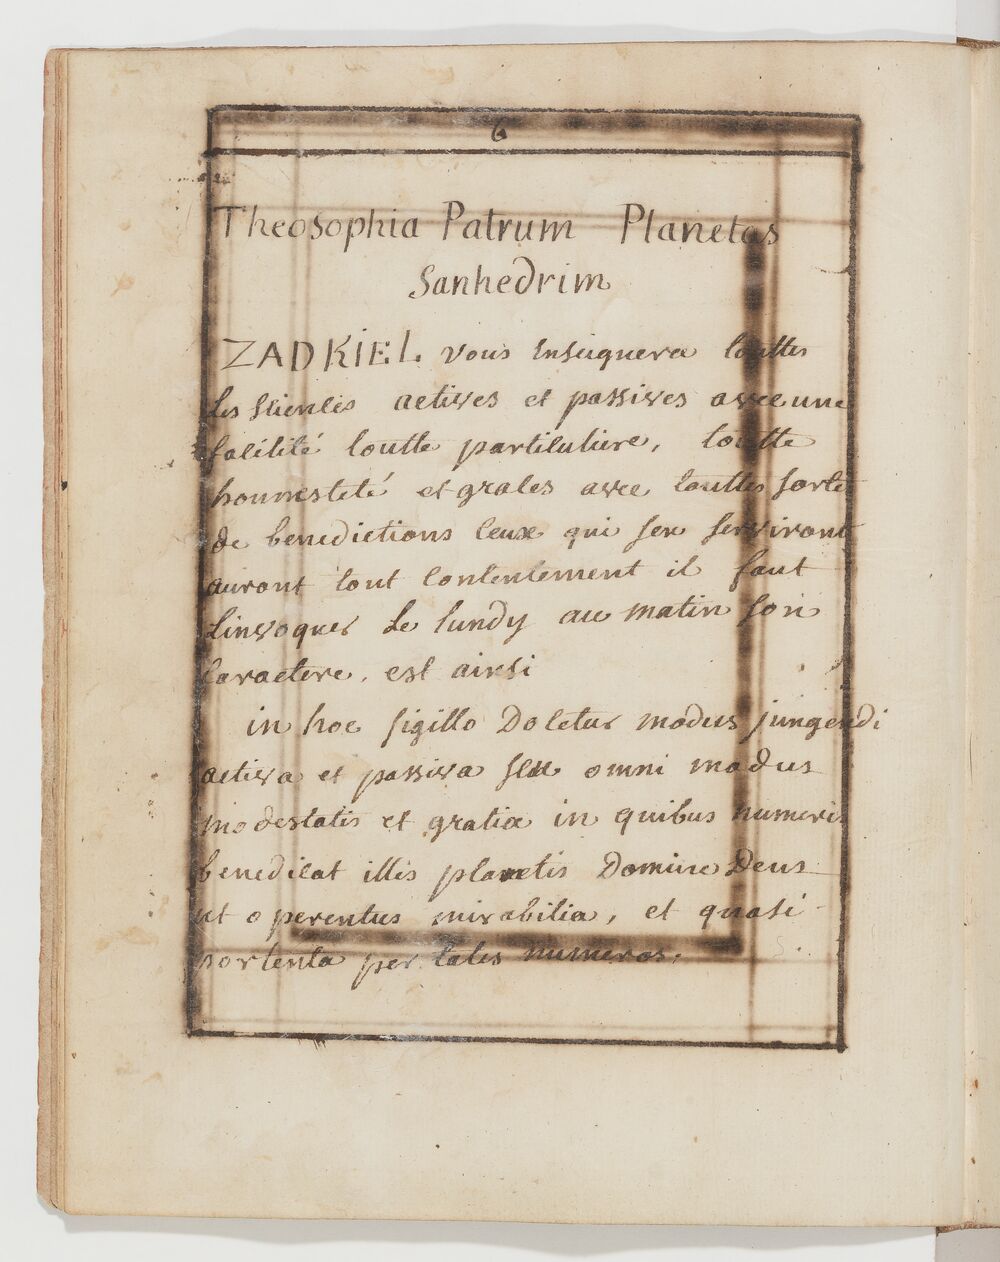 6
Theosophia Patrum Planetas
Sanhedrim
ZADKIEL vous enseignera touttes
Les sciences actives et passives avec une
facilité toutte particuliere, toutte
honnesteté et graces avec touttes sorte
de benedictions ceux qui sen serviront
auront tout contentement il faut
Linvoquer Le lundy au matin son
Caractere, est ainsi
in hoc sigillo Docetur modus jungendi
activa et passiva sed omni modus
modestatis et gratiæ in quibus numeris
benedicat illis planetis Domine Deus
ut operentus mirabilia, et quasi
portenta per tales numeros.